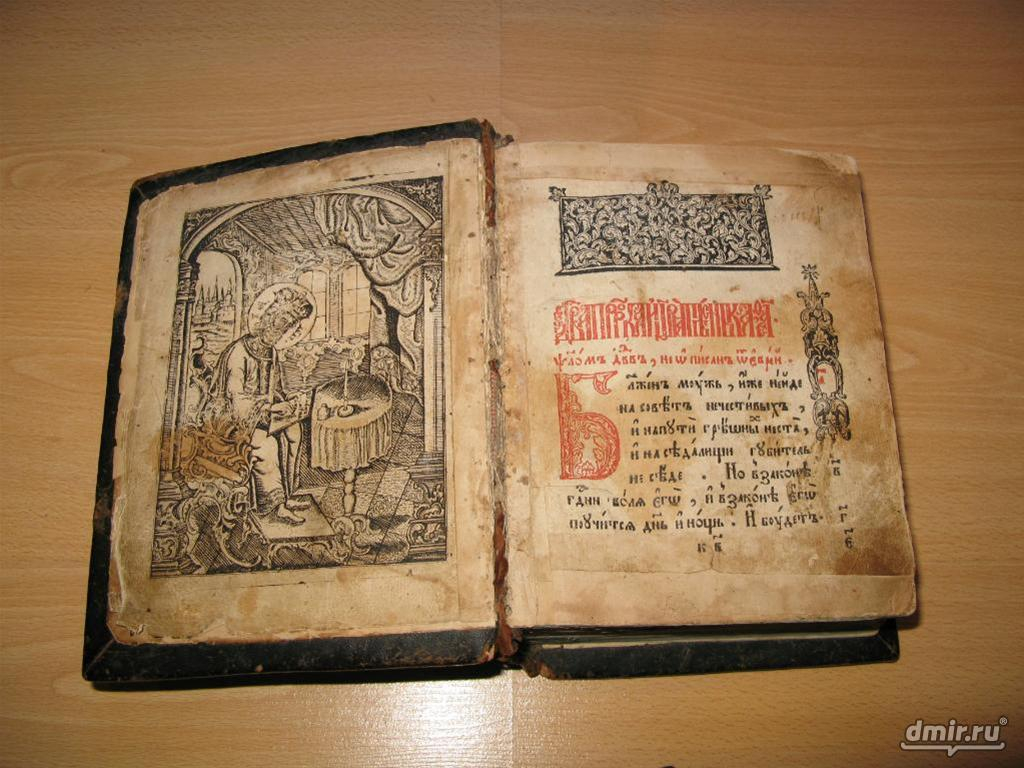 ѱло́мъ дв҃въ, не ѡ҆писанъ ѿ є҆врѣ́й .
Бл҃же́нъ моу́жь , и҆́же не и҆́де
на совѣ́тъ нечести́выхъ ,
и҆ на пути́ грѣ́шныⷯ не ста̀ ,
и҆ на сѣда́лищи гу́битель
не сѣ́де . Но в зако́нѣ
гдⷭ҇ни во́ля є҆гѡ̀ , и҆ в зако́нѣ є҆гѡ̀
поучи́тся дн҃ь и҆ но́щь . И҆ боу́детъ
к҃в
г҃
в҃
г҃
є҃
dmir.ru®